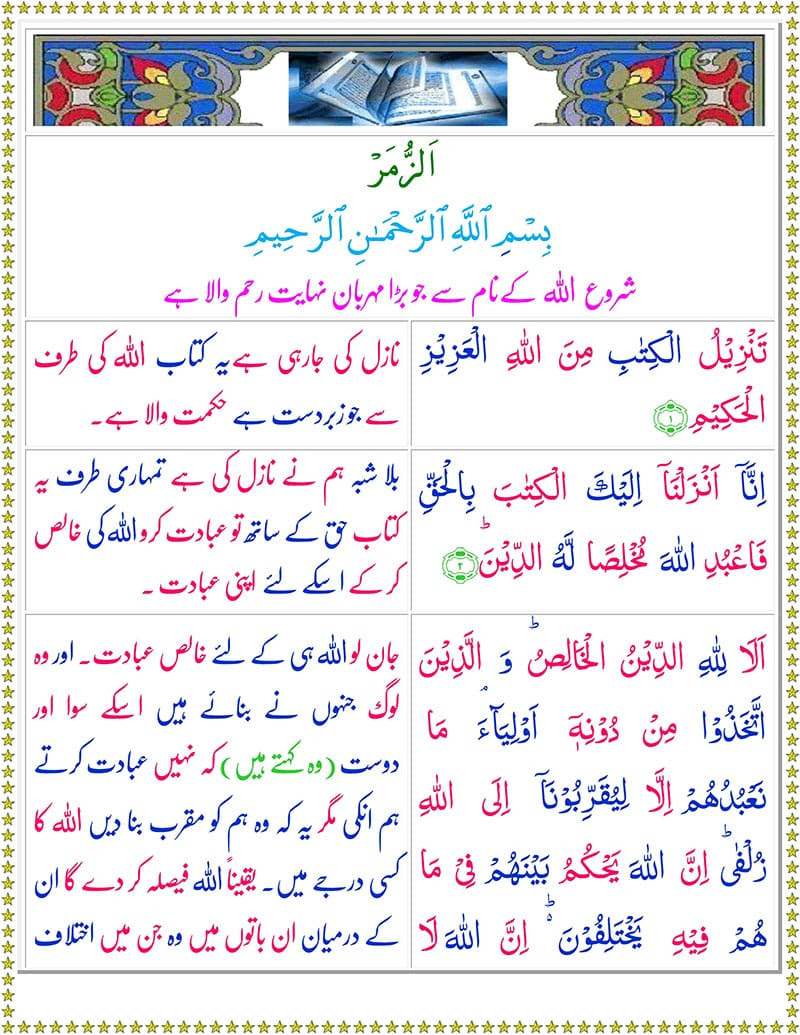 اَلزُّمَرْ
بِسْمِ ٱللَّهِ ٱلرَّحْمَـٰنِ ٱلرَّحِيمِ
شروع اللہ کے نام سے جو بڑا مہربان نہایت رحم والا ہے
تَنْزِيْلُ الْكِتٰبِ مِنَ اللّٰهِ الْعَزِيْزِ
الْحَكِيْمِ ۝۱
نازل کی جارہی ہے یہ کتاب اللہ کی طرف
سے جو زبردست ہے حکمت والا ہے۔
اِنَّاۤ اَنْزَلْنَاۤ اِلَيْكَ الْكِتٰبَ بِالْحَقِّ
فَاعْبُدِ اللّٰهَ مُخْلِصًا لَّهُ الدِّيْنَ ؕ ۝۲
بلا شبہ ہم نے نازل کی ہے تمہاری طرف یہ
کتاب حق کے ساتھ تو عبادت کرو اللہ کی خالص
کر کے اسکے لئے اپنی عبادت ۔
اَلَا لِلّٰهِ الدِّيْنُ الْخَالِصُ ؕ وَ الَّذِيْنَ
اتَّخَذُوْا مِنْ دُوْنِهٖۤ اَوْلِيَآءَ ۘ مَا
نَعْبُدُهُمْ اِلَّا لِيُقَرِّبُوْنَاۤ اِلَى اللّٰهِ
زُلْفٰى ؕ اِنَّ اللّٰهَ يَحْكُمُ بَيْنَهُمْ فِىْ مَا
هُمْ فِيْهِ يَخْتَلِفُوْنَ ۬ؕ اِنَّ اللّٰهَ لَا
جان لو اللہ ہی کے لئے خالص عبادت۔ اور وہ
لوگ جنہوں نے بنائے ہیں اسکے سوا اور
دوست (وہ کہتے ہیں) کہ نہیں عبادت کرتے
ہم انکی مگر یہ کہ وہ ہم کو مقرب بنا دیں اللہ کا
کسی درجے میں۔ یقیناً اللہ فیصلہ کر دے گا ان
کے درمیان ان باتوں میں وہ جن میں اختلاف